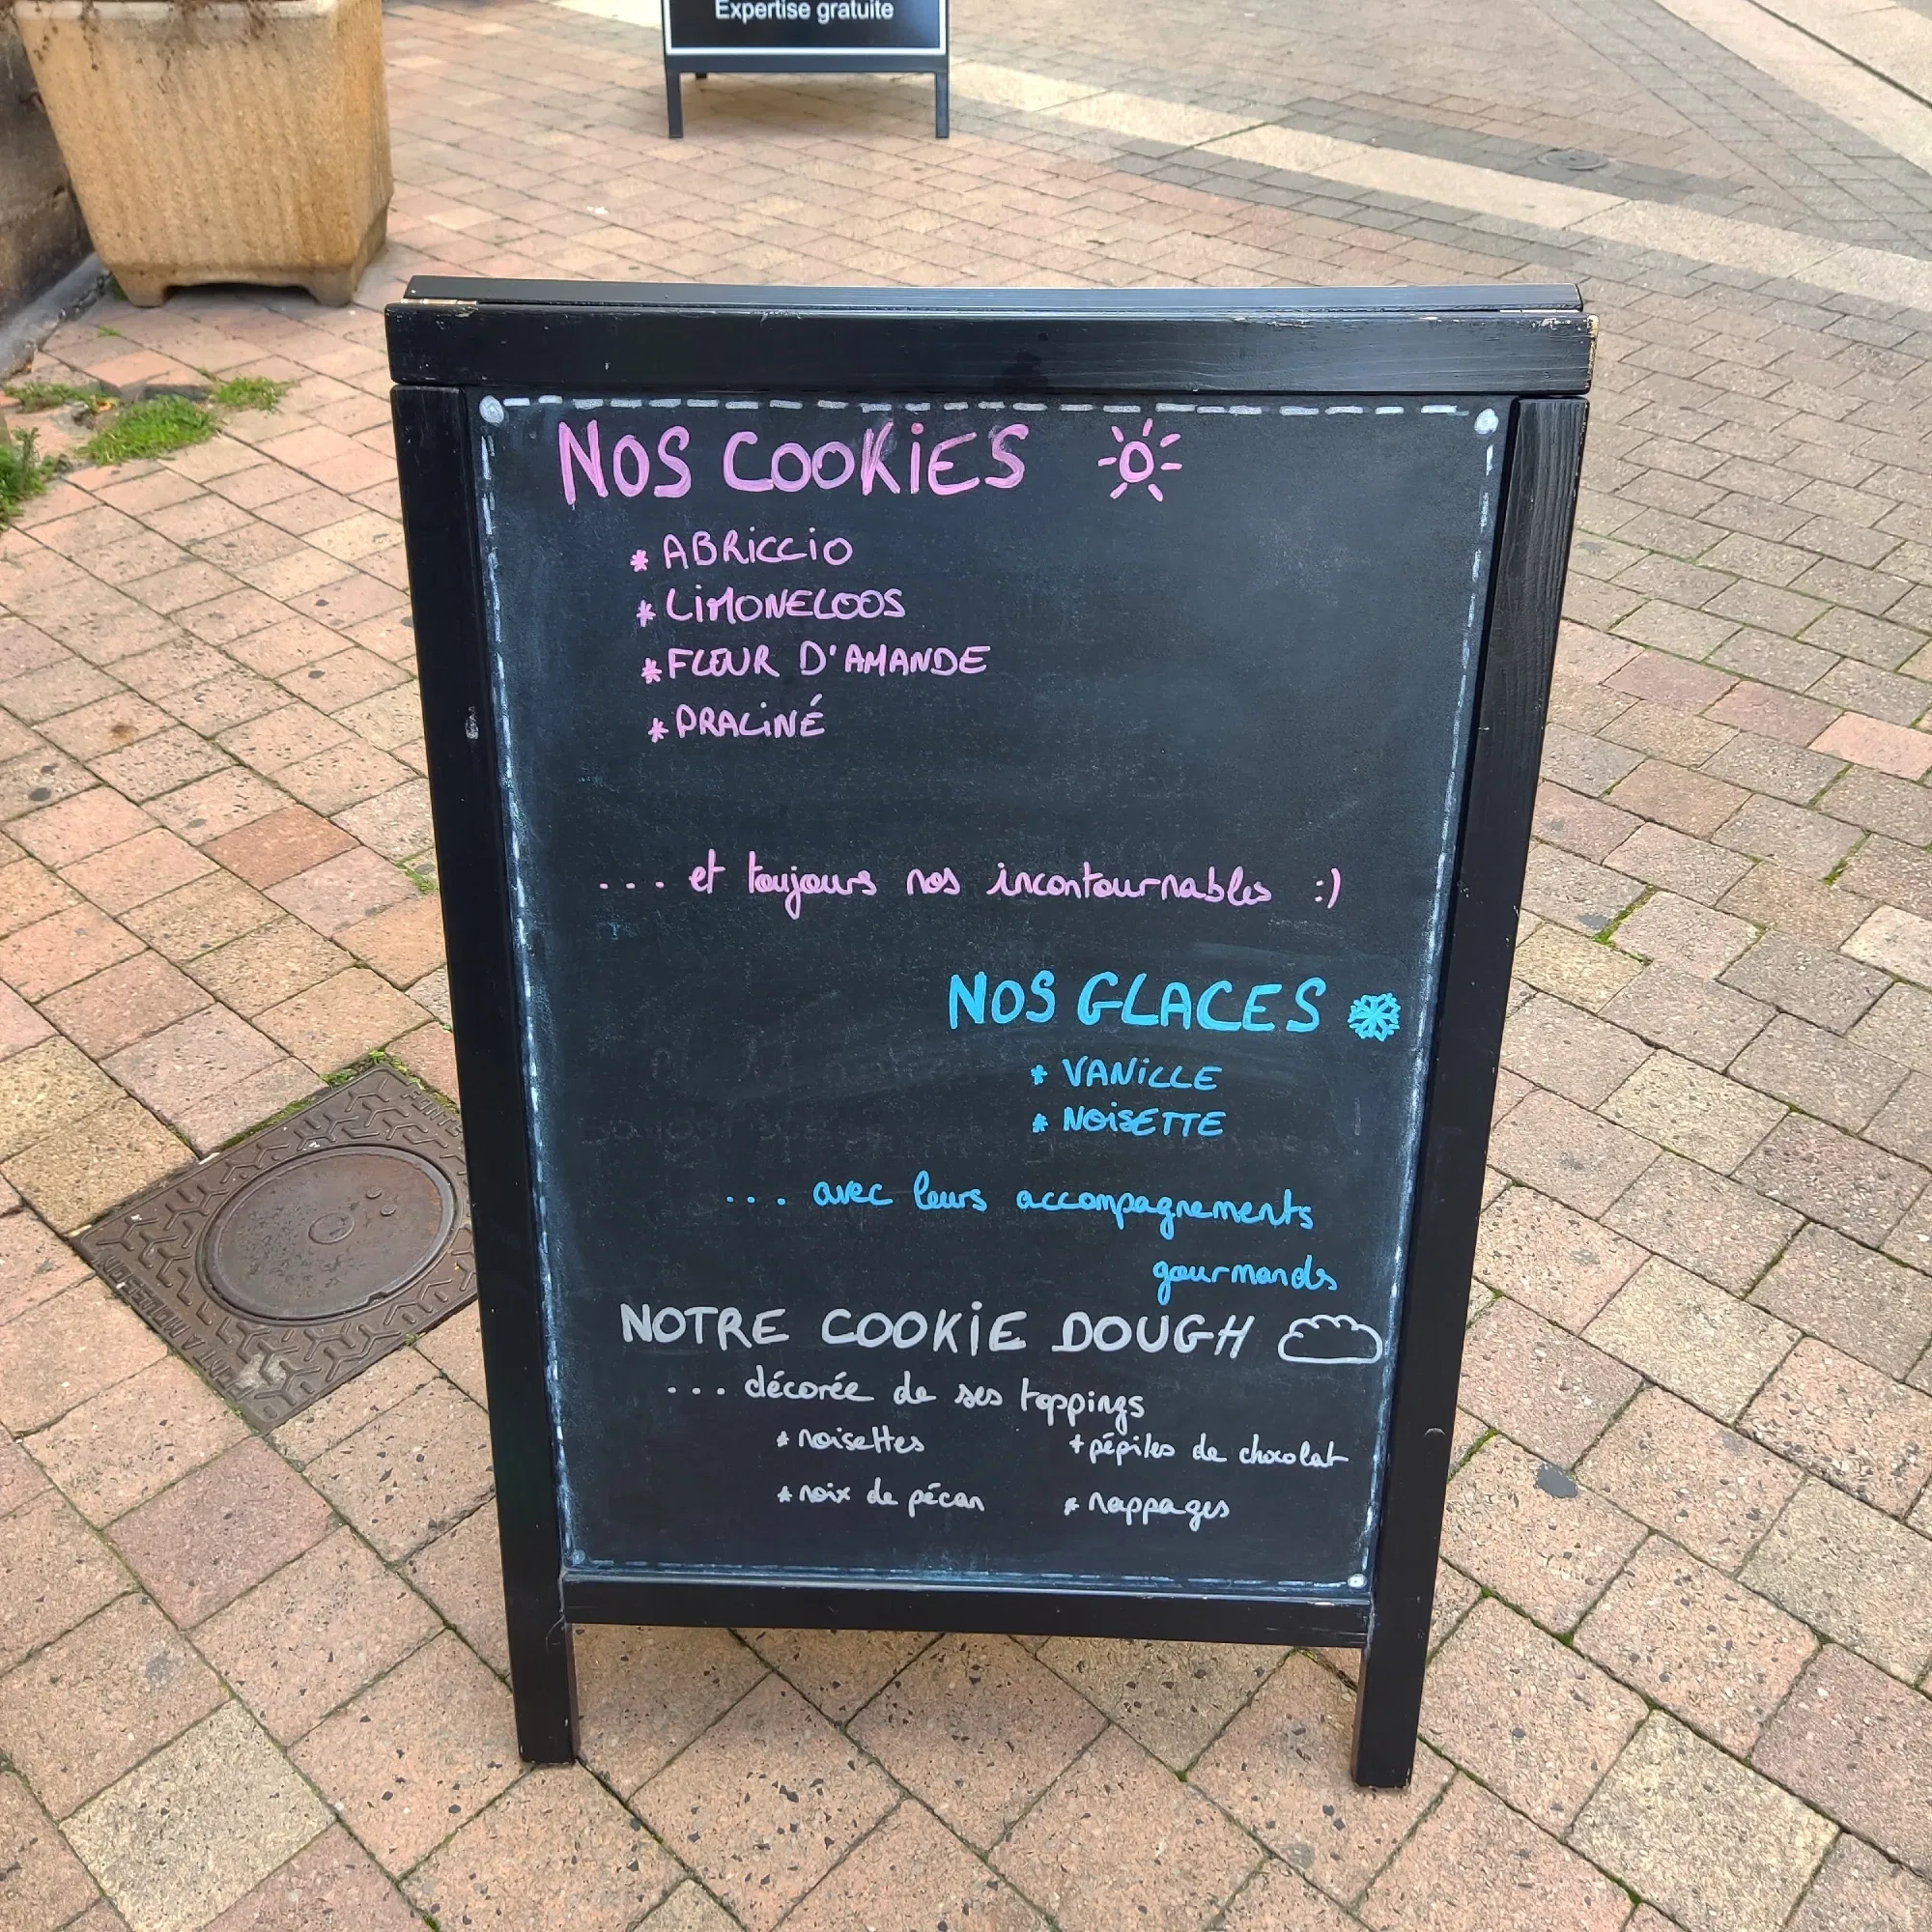 Expertise gratuite
NOS COOKiES
* ABRiCCiO
* LiMONELOOS
* FLEUR D'AMANDE
* PRALiNÉ
... et toujours nos incontournables :)
NOS GLACES
* VANiLLE
* NOiSETTE
... avec leurs accompagnements
gourmands
NOTRE COOKiE DOUGH
... décorée de ses toppings
* noisettes * pépites de chocolat
* noix de pécan * nappages